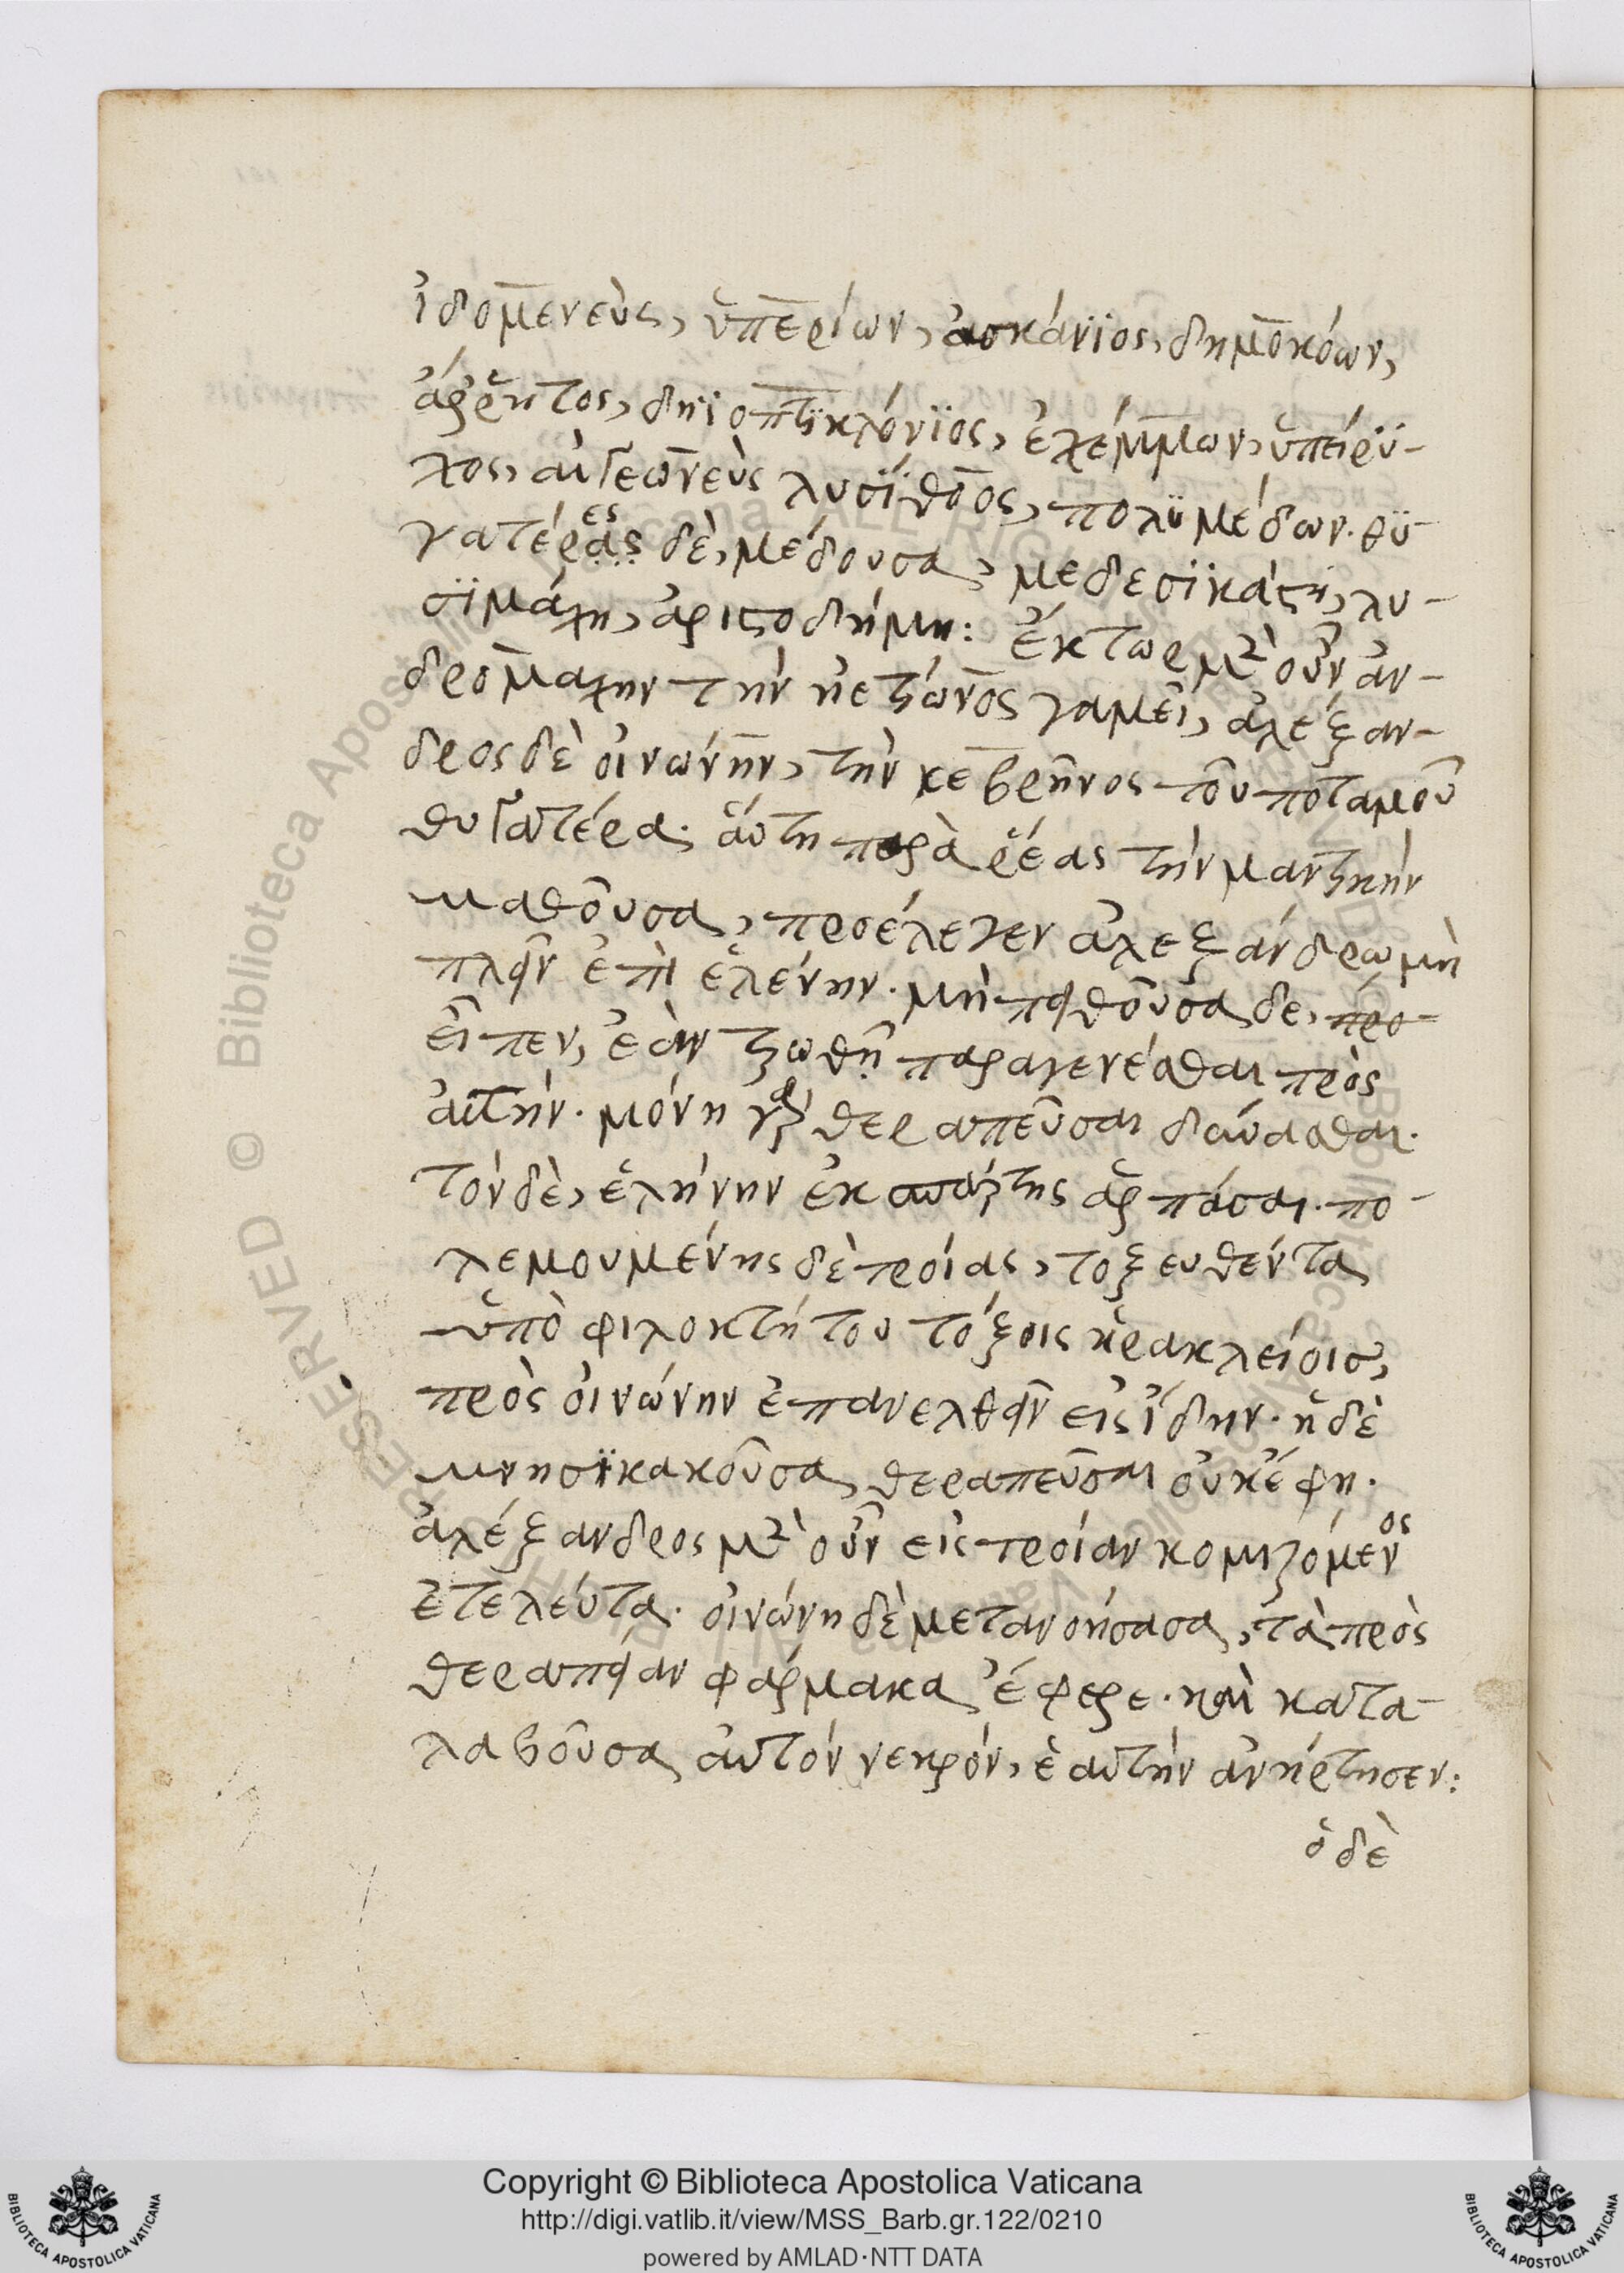 ἰδομενεὺς, ὑπερίων, ἀσκάνϊος, δημοκόων,
ἄρῥητος, δηϊοπτϊκλόνϊος, ἐχέμμων, ὑπείρϋ-
χος, αἰγεωνεὺς λυσΐθοος, πολϋμέδων. θϋ-
γατέρας
ες
δὲ, μέδουσα, μεδεσϊκάστη, λυ-
σϊμάχη, ἀριστοδήμη: ἕκτωρ μὲν οὖν ἀν-
δρομαχην τὴν ἠετίωνος γαμεῖ, ἀλέξαν-
δρος δὲ οἰνώνην, τὴν κεβρῆνος τοῦ ποταμοῦ
θυγατέρα. ἅυτη παρὰ ῥέας τὴν μαντικὴν
μαθοῦσα, προέλεγεν ἀλεξάνδρω μὴ
πλεῖν ἐπὶ ἑλένην. μὴ πειθοῦσα δε, προ-
εῖπεν, ἐὰν τρωθῆ παραγενέσθαι πρὸς
αὐτήν. μόνη γὰρ θεραπεῦσαι δύνασθαι.
τὸν δὲ, ἑλήνην ἐκ σπάρτης ἁρπάσαι. πο-
λεμουμένης δὲ τροίας, τοξευθέντα
ὑπὸ φιλοκτήτου τόξοις ἡρακλείοισ,
πρὸς οἰνώνην ἐπανελθεῖν εἰς ἴδην. ἡ δὲ
μνησϊκακοῦσα, θεραπεῦσαι οὐκ ἔφη.
ἀλέξανδρος μὲν οὖν εἰς τροίαν κομιζόμενος
ἐτελεύτα. οἰνώνη δὲ μετανοήσασα, τὰ πρὸς
θεραπείαν φάρμακα ἔφερε. καὶ κατα-
λαβοῦσα αὐτὸν νεκρόν, ἑαυτὴν ἀνήρτησεν:
ὁ δὲ
© Biblioteca Apostolica Vaticana ALL RIGHTS RESERVED
Copyright © Biblioteca Apostolica Vaticana
http://digi.vatlib.it/view/MSS_Barb.gr.122/0210
powered by AMLAD·NTT DATA
BIBLIOTECA APOSTOLICA VATICANA
BIBLIOTECA APOSTOLICA VATICANA